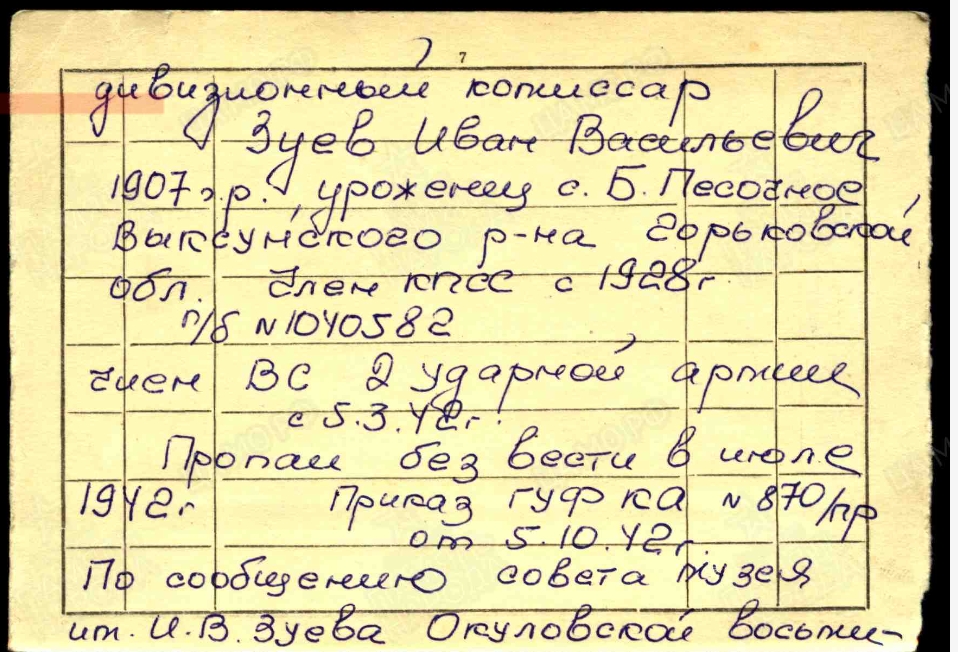 7
дивизионный комиссар
Зуев Иван Васильевич
1907 г.р., уроженец с. Б. Песочное
Выксунского р-на Горьковской
обл. Член КПСС с 1928г
п/б №1040582
член ВС 2 ударной армии
с 5.3.42г.
Пропал без вести в июле
1942г Приказ ГУФ КА №870/пр
от 5.10.42г.
По сообщению совета музея
им. И.В. Зуева Окуловской восьми-